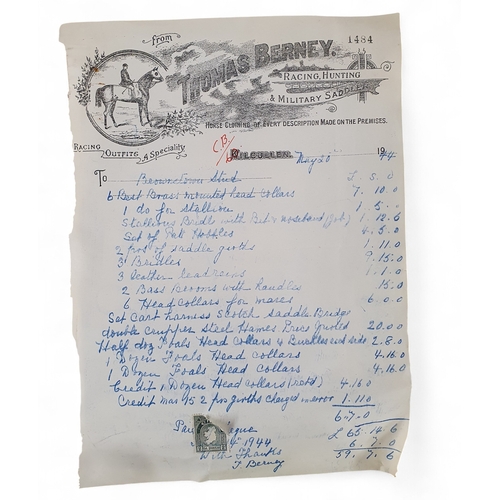 From
1484
THOMAS BERNEY,
RACING, HUNTING
& MILITARY SADDLER
HORSE CLOTHING OF EVERY DESCRIPTION MADE ON THE PREMISES.
RACING OUTFITS A Speciality
C/B/
KILCULLEN, May 20 1944
To Browntown Stud £ . S. D
6 Best Brass mounted head collars 7. 10. 0
1 do for stallion 1. 5. 0
Stallions Bridle with Bit & noseband 1. 12. 6
Set of Hobbles 4. 5. 0
2 prs of saddle girths 1. 11. 0
3 Bridles 9. 15. 0
3 Leather leadreins 1. 1. 0
2 Bass Brooms with handles 15. 0
6 Head collars for mares 6. 0. 0
Set Cart harness Scotch Saddle Bridge
double crupper Steel Hames Price quoted 20. 0. 0
Half doz Foals Head Collars 4 Buckles each side 2. 8. 0
1 Dozen Foals Head Collars 4. 16. 0
1 Dozen Foals Head Collars 4. 16. 0
Credit 1 Dozen Head Collars (retd) 4. 16. 0
Credit Mar 15 2 prs girths charged in error 1. 11. 0
6. 7. 0
£ 65. 14. 6
6. 7. 0
59. 7. 6
1944
With Thanks
T Berney